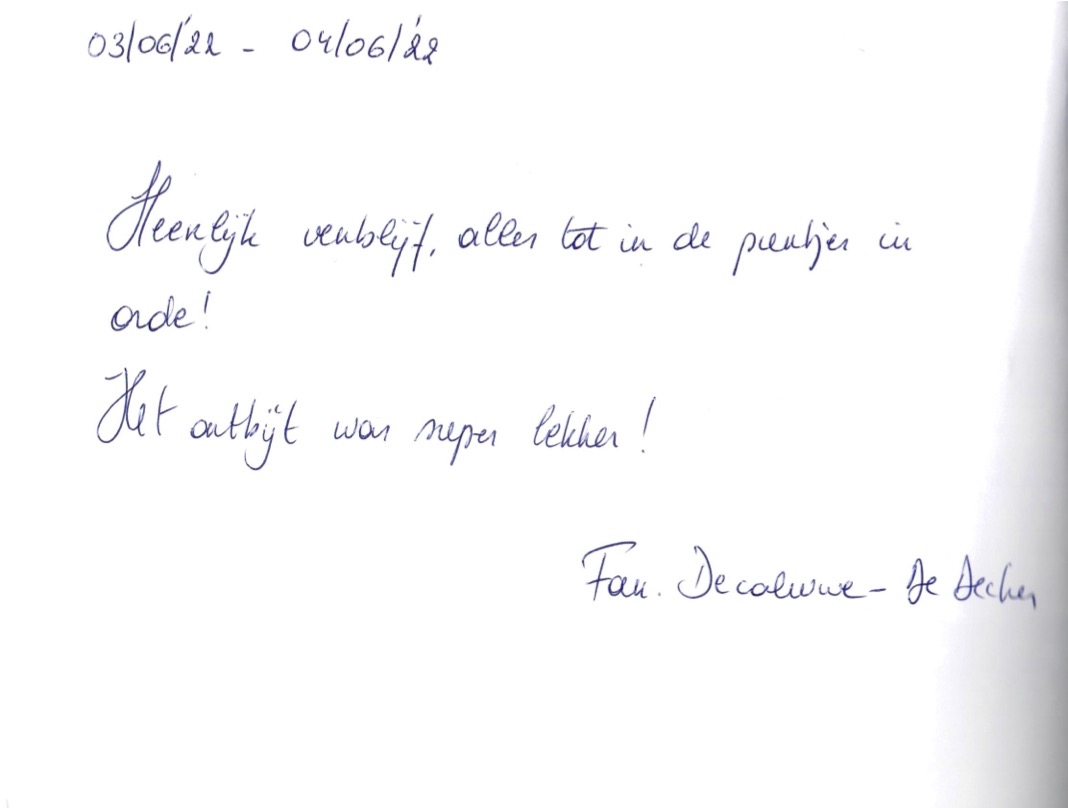 03/06/'22 - 04/06/'22
Heerlijk verblijf, alles tot in de puntjes in
orde!
Het ontbijt was super lekker!
Fam. Decaluwe - De Decker